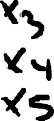 x3
x4
x5